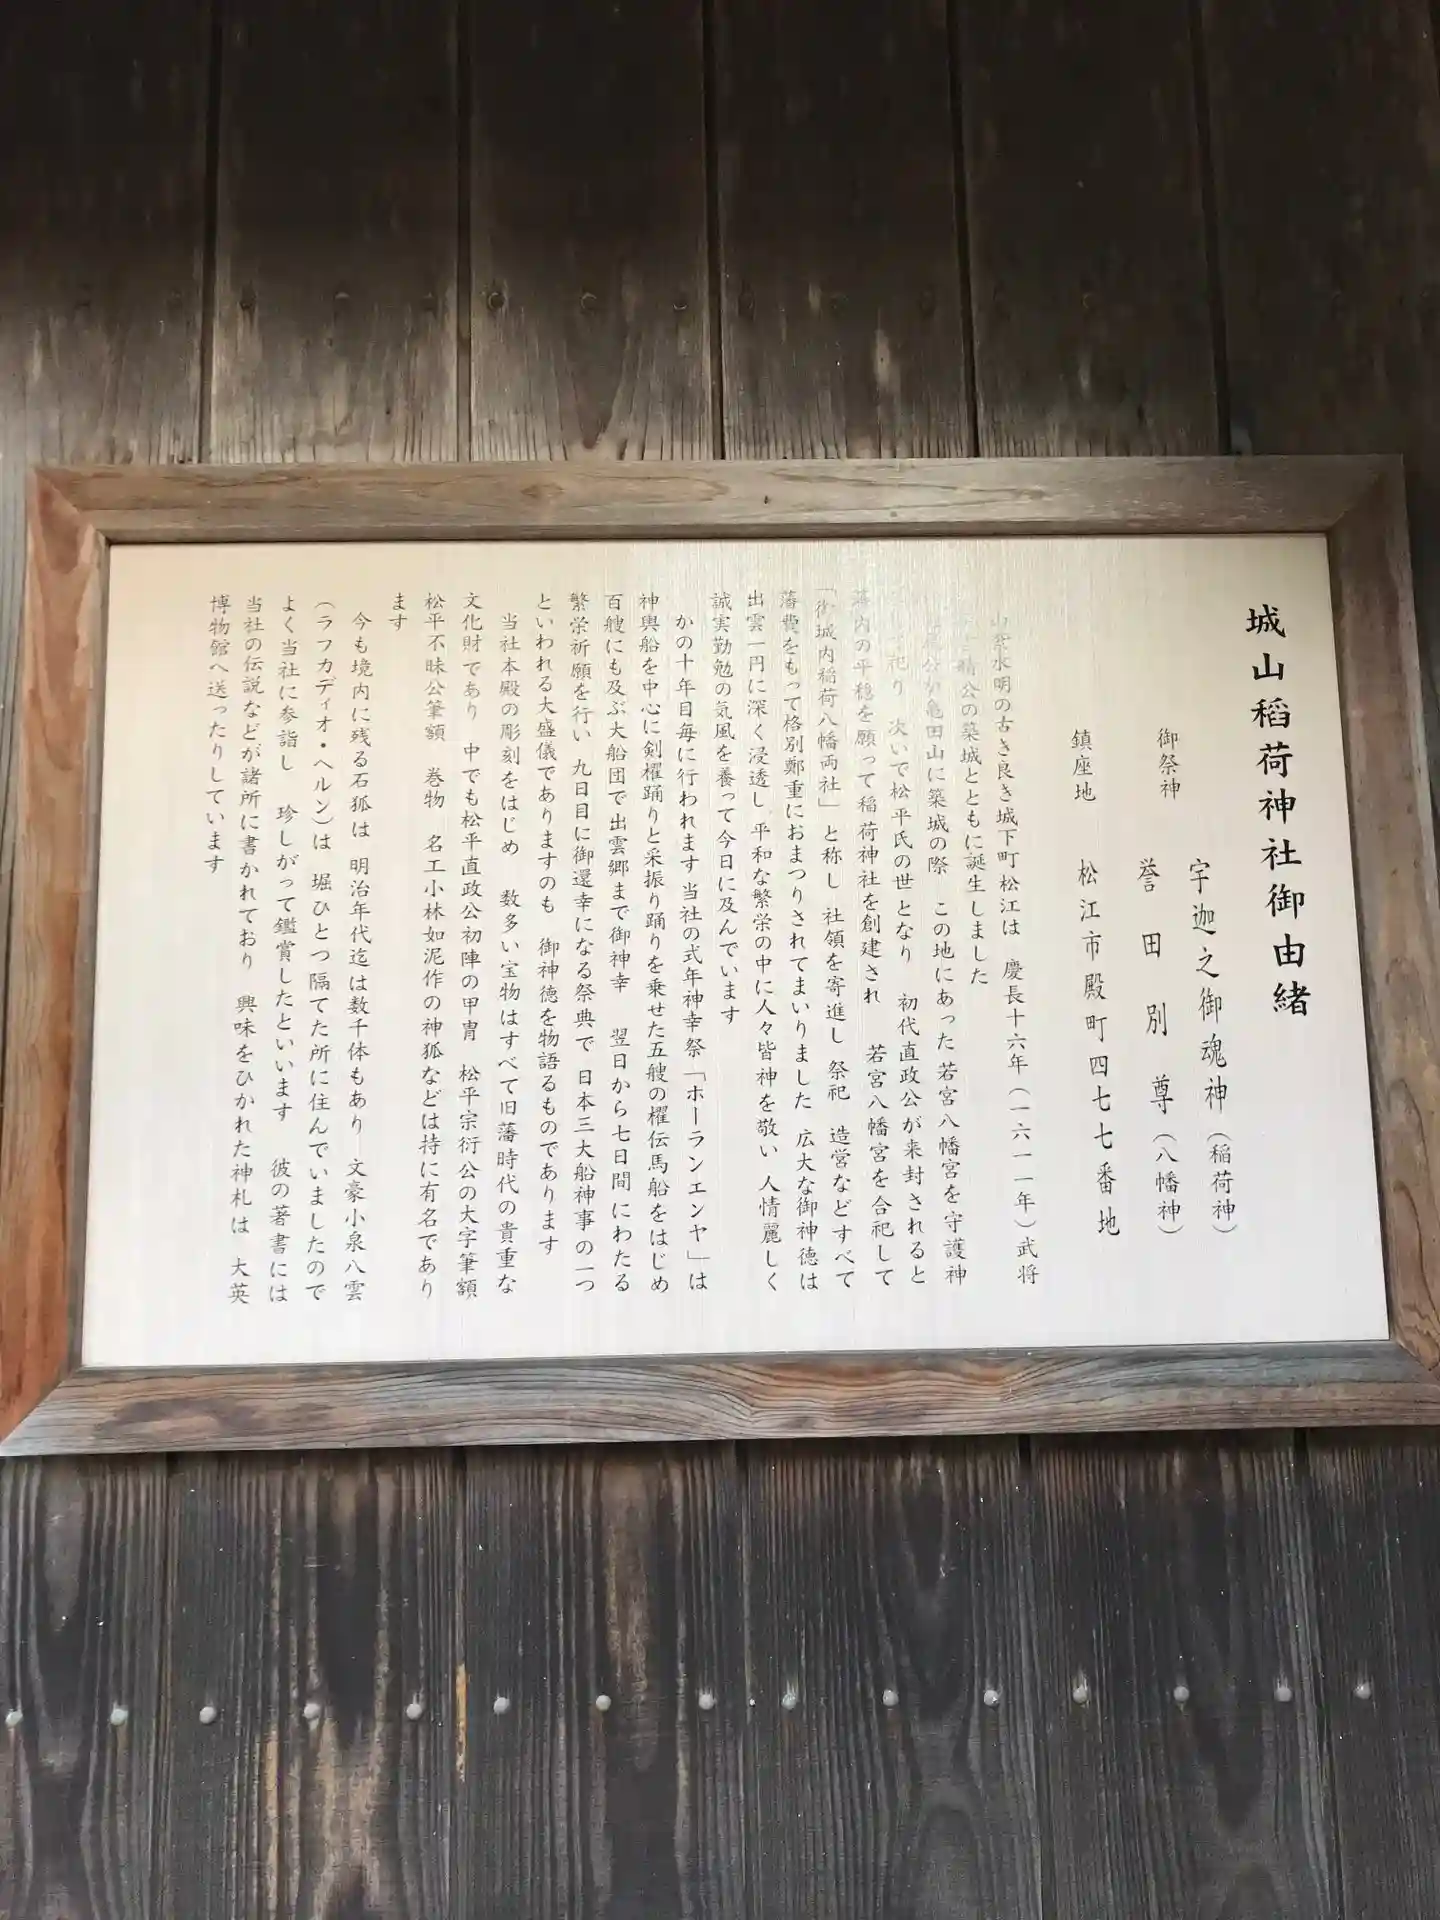 城山稲荷神社御由緒
御祭神　宇迦之御魂神（稲荷神）
誉田別尊（八幡神）
鎮座地　松江市殿町四七七番地
山紫水明の古き良き城下町松江は　慶長十六年（一六一一年）武将
晴公の築城とともに誕生しました
公が亀田山に築城の際　この地にあった若宮八幡宮を守護神
祀り　次いで松平氏の世となり　初代直政公が来封されると
藩内の平穏を願って稲荷神社を創建され　若宮八幡宮を合祀して
「御城内稲荷八幡両社」と称し　社領を寄進し　祭祀　造営などすべて
藩費をもって格別鄭重におまつりされてまいりました　広大な御神徳は
出雲一円に深く浸透し　平和な繁栄の中に人々皆神を敬い　人情麗しく
誠実勤勉の気風を養って今日に及んでいます
かの十年目毎に行われます当社の式年神幸祭「ホーランエンヤ」は
神輿船を中心に剣櫂踊りと采振り踊りを乗せた五艘の櫂伝馬船をはじめ
百艘にも及ぶ大船団で出雲郷まで御神幸　翌日から七日間にわたる
繁栄祈願を行い　九日目に御還幸になる祭典で　日本三大船神事の一つ
といわれる大盛儀でありますのも　御神徳を物語るものであります
当社本殿の彫刻をはじめ　数多い宝物はすべて旧藩時代の貴重な
文化財であり　中でも松平直政公初陣の甲冑　松平宗衍公の大字筆額
松平不昧公筆額　巻物　名工小林如泥作の神狐などは持に有名であり
ます
今も境内に残る石狐は　明治年代迄は数千体もあり　文豪小泉八雲
（ラフカディオ・ヘルン）は　堀ひとつ隔てた所に住んでいましたので
よく当社に参詣し　珍しがって鑑賞したといいます　彼の著書には
当社の伝説などが諸所に書かれており　興味をひかれた神札は　大英
博物館へ送ったりしています